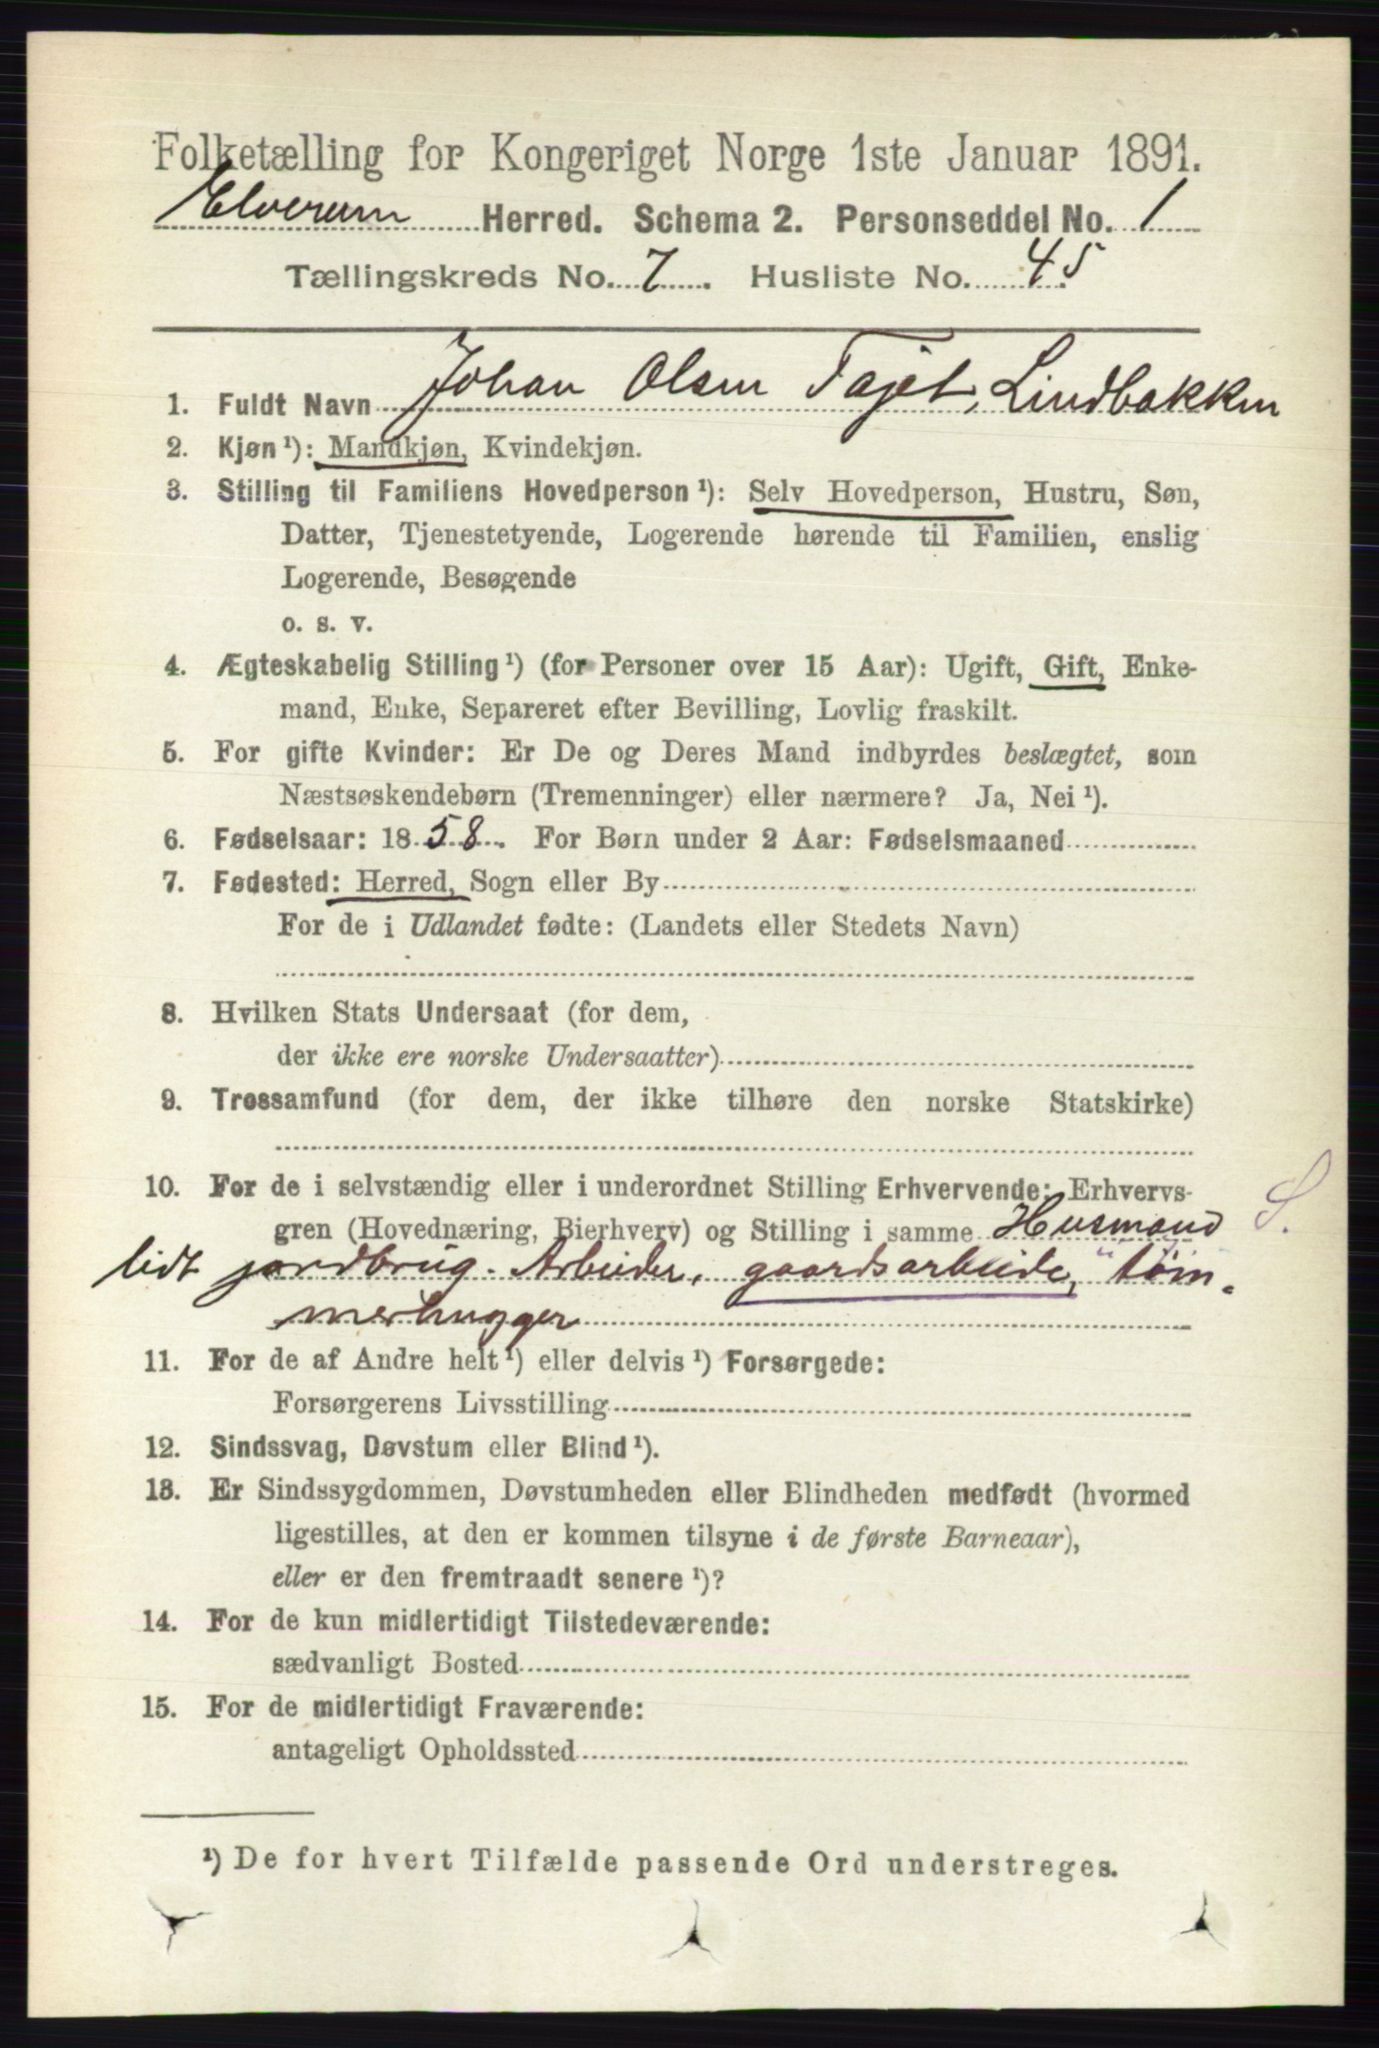 Folketælling for Kongeriget Norge 1ste Januar 1891.
Elverum Herred. Schema 2. Personseddel No. 1
Tællingskreds No. 7. Husliste No. 45
1. Fuldt Navn Johan Olsen Fajet, Lindbakken
2. Kjøn¹): Mandkjøn, Kvindekjøn.
3. Stilling til Familiens Hovedperson¹): Selv Hovedperson, Hustru, Søn,
Datter, Tjenestetyende, Logerende hørende til Familien, enslig
Logerende, Besøgende
o. s. v.
4. Ægteskabelig Stilling¹) (for Personer over 15 Aar): Ugift, Gift, Enke-
mand, Enke, Separeret efter Bevilling, Lovlig fraskilt.
5. For gifte Kvinder: Er De og Deres Mand indbyrdes beslægtet, som
Næstsøskendebørn (Tremenninger) eller nærmere? Ja, Nei¹).
6. Fødselsaar: 1858. For Børn under 2 Aar: Fødselsmaaned
7. Fødested: Herred, Sogn eller By
For de i Udlandet fødte: (Landets eller Stedets Navn)
8. Hvilken Stats Undersaat (for dem,
der ikke ere norske Undersaatter)
9. Trossamfund (for dem, der ikke tilhøre den norske Statskirke)
10. For de i selvstændig eller i underordnet Stilling Erhvervende: Erhvervs-
gren (Hovednæring, Bierhverv) og Stilling i samme Husmand S.
lidt jordbrug. Arbeider, gaardsarbeide, tøm-
merhugger
11. For de af Andre helt¹) eller delvis¹) Forsørgede:
Forsørgerens Livsstilling
12. Sindssvag, Døvstum eller Blind¹).
13. Er Sindssygdommen, Døvstumheden eller Blindheden medfødt (hvormed
ligestilles, at den er kommen tilsyne i de første Barneaar),
eller er den fremtraadt senere¹)?
14. For de kun midlertidigt Tilstedeværende:
sædvanligt Bosted
15. For de midlertidigt Fraværende:
antageligt Opholdssted
¹) De for hvert Tilfælde passende Ord understreges.